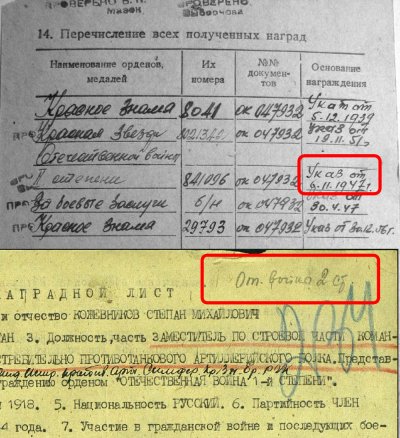 ПРОВЕРЕНО
ПРОВЕРЕНО
14. Перечисление всех полученных наград
Наименование орденов, медалей
Их номера
№№ документов
Основание награждения
Красное Знамя 8041 ок 047932 Указ от 5.12.1939
Красная Звезда ок 047932 Указ от 19.11.51г.
Отечественной войны
II степени 841096 ок 047932 Указ от 6.11.1947г.
За боевые заслуги б/н ок 047932 Указ от 30.4.47
Красное Знамя 29793 ок 047932 Указ от 30.12.56г.
От. война 2 ст
НАГРАДНОЙ ЛИСТ
и отчество КОЖЕВНИКОВ СТЕПАН МИХАЙЛОВИЧ
ТАН 3. Должность,часть ЗАМЕСТИТЕЛЬ ПО СТРОЕВОЙ ЧАСТИ КОМАН-
СТРЕБИТЕЛЬНО ПРОТИВОТАНКОВОГО АРТИЛЛЕРИЙСКОГО ПОЛКА. Представ-
граждению орденом "ОТЕЧЕСТВЕННАЯ ВОЙНА 1-й СТЕПЕНИ".
и 1918. 5. Национальность РУССКИЙ. 6. Партийность ЧЛЕН
4 года. 7. Участие в гражданской войне и последующих бое-